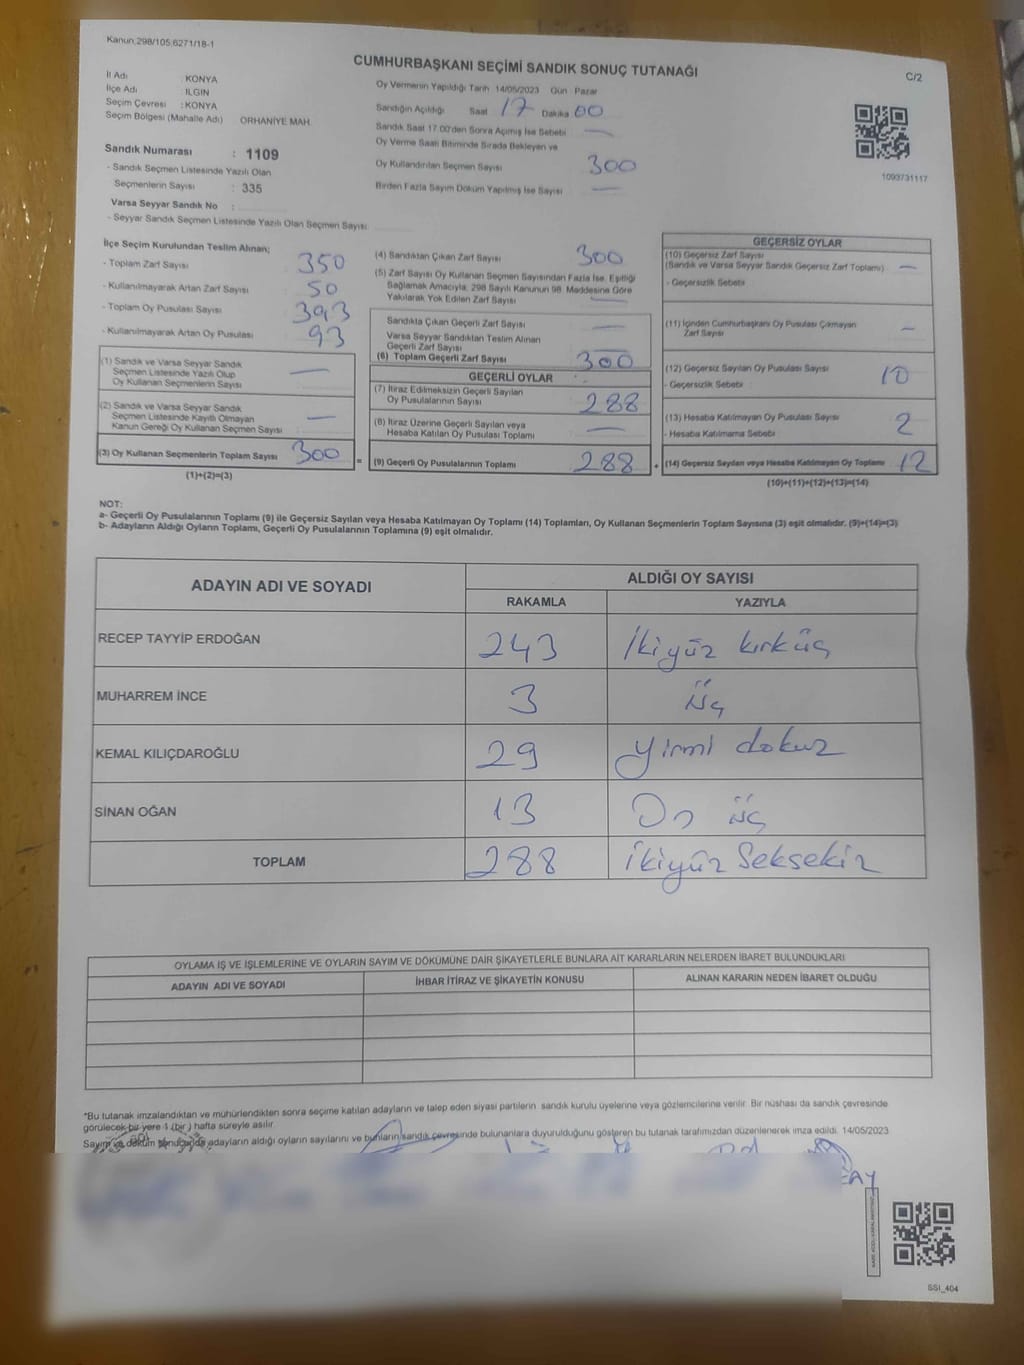 Kanun:298/105;6271/18-1
CUMHURBAŞKANI SEÇİMİ SANDIK SONUÇ TUTANAĞI
C/2
İl Adı : KONYA
İlçe Adı : ILGIN
Seçim Çevresi : KONYA
Seçim Bölgesi (Mahalle Adı) ORHANİYE MAH
Sandık Numarası : 1109
- Sandık Seçmen Listesinde Yazılı Olan
Seçmenlerin Sayısı : 335
Varsa Seyyar Sandık No :
- Seyyar Sandık Seçmen Listesinde Yazılı Olan Seçmen Sayısı:
Oy Vermenin Yapıldığı Tarih 14/05/2023 Gün : Pazar
Sandığın Açıldığı Saat 17 Dakika 00
Sandık Saat 17.00'den Sonra Açılmış İse Sebebi —
Oy Verme Saati Bitiminde Sırada Bekleyen ve
Oy Kullandırılan Seçmen Sayısı 300
Birden Fazla Sayım Döküm Yapılmış İse Sayısı —
1093731117
İlçe Seçim Kurulundan Teslim Alınan;
- Toplam Zarf Sayısı 350
- Kullanılmayarak Artan Zarf Sayısı 50
- Toplam Oy Pusulası Sayısı 393
- Kullanılmayarak Artan Oy Pusulası 93
(1) Sandık ve Varsa Seyyar Sandık
Seçmen Listesinde Yazılı Olup
Oy Kullanan Seçmenlerin Sayısı —
(2) Sandık ve Varsa Seyyar Sandık
Seçmen Listesinde Kayıtlı Olmayan
Kanun Gereği Oy Kullanan Seçmen Sayısı —
(3) Oy Kullanan Seçmenlerin Toplam Sayısı 300
(1)+(2)=(3)
(4) Sandıktan Çıkan Zarf Sayısı 300
(5) Zarf Sayısı Oy Kullanan Seçmen Sayısından Fazla İse, Eşitliği
Sağlamak Amacıyla; 298 Sayılı Kanunun 98. Maddesine Göre
Yakılarak Yok Edilen Zarf Sayısı —
Sandıkta Çıkan Geçerli Zarf Sayısı —
Varsa Seyyar Sandıktan Teslim Alınan
Geçerli Zarf Sayısı —
(6) Toplam Geçerli Zarf Sayısı 300
GEÇERLİ OYLAR
(7) İtiraz Edilmeksizin Geçerli Sayılan
Oy Pusulalarının Sayısı 288
(8) İtiraz Üzerine Geçerli Sayılan veya
Hesaba Katılan Oy Pusulası Toplamı —
(9) Geçerli Oy Pusulalarının Toplamı 288
=
+
GEÇERSİZ OYLAR
(10) Geçersiz Zarf Sayısı
(Sandık ve Varsa Seyyar Sandık Geçersiz Zarf Toplamı) —
- Geçersizlik Sebebi
(11) İçinden Cumhurbaşkanı Oy Pusulası Çıkmayan
Zarf Sayısı —
(12) Geçersiz Sayılan Oy Pusulası Sayısı 10
- Geçersizlik Sebebi :
(13) Hesaba Katılmayan Oy Pusulası Sayısı 2
- Hesaba Katılmama Sebebi
(14) Geçersiz Sayılan veya Hesaba Katılmayan Oy Toplamı 12
(10)+(11)+(12)+(13)=(14)
NOT:
a- Geçerli Oy Pusulalarının Toplamı (9) ile Geçersiz Sayılan veya Hesaba Katılmayan Oy Toplamı (14) Toplamları, Oy Kullanan Seçmenlerin Toplam Sayısına (3) eşit olmalıdır. (9)+(14)=(3)
b- Adayların Aldığı Oyların Toplamı, Geçerli Oy Pusulalarının Toplamına (9) eşit olmalıdır.
ADAYIN ADI VE SOYADI
ALDIĞI OY SAYISI
RAKAMLA YAZIYLA
RECEP TAYYİP ERDOĞAN 243 İkiyüz kırküç
MUHARREM İNCE 3 üç
KEMAL KILIÇDAROĞLU 29 yirmi dokuz
SİNAN OĞAN 13 On üç
TOPLAM 288 ikiyüz Seksekiz
OYLAMA İŞ VE İŞLEMLERİNE VE OYLARIN SAYIM VE DÖKÜMÜNE DAİR ŞİKAYETLERLE BUNLARA AİT KARARLARIN NELERDEN İBARET BULUNDUKLARI
ADAYIN ADI VE SOYADI İHBAR İTİRAZ VE ŞİKAYETİN KONUSU ALINAN KARARIN NEDEN İBARET OLDUĞU
*Bu tutanak imzalandıktan ve mühürlendikten sonra seçime katılan adayların ve talep eden siyasi partilerin sandık kurulu üyelerine veya gözlemcilerine verilir. Bir nüshası da sandık çevresinde
görülecek bir yere 1 (bir) hafta süreyle asılır.
Sayım ve döküm sonucunda adayların aldığı oyların sayılarını ve bunların sandık çevresinde bulunanlara duyurulduğunu gösteren bu tutanak tarafımızdan düzenlenerek imza edildi. 14/05/2023
SSI_404